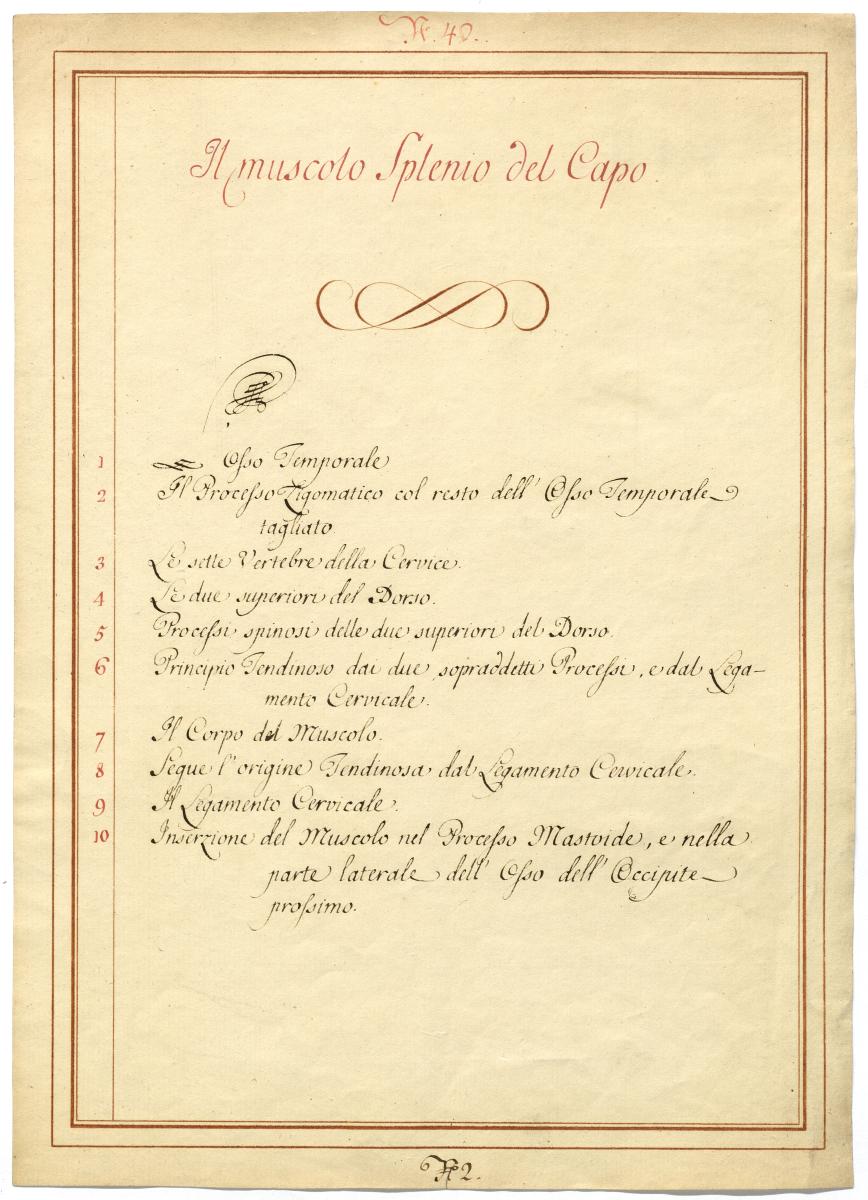 N. 48.
Il muscolo Splenio del Capo.
1 Osso Temporale
2 Il Processo Zigomatico col resto dell' Osso Temporale
tagliato.
3 Le sette Vertebre della Cervice.
4 Le due superiori del Dorso.
5 Processi spinosi delle due superiori del Dorso.
6 Principio Tendinoso dai due sopraddetti Processi, e dal Lega-
mento Cervicale.
7 Il Corpo del Muscolo.
8 Segue l'origine Tendinosa dal Legamento Cervicale.
9 Il Legamento Cervicale.
10 Inserzione del Muscolo nel Processo Mastoide, e nella
parte laterale dell' Osso dell' Occipite
prossimo.
N 2.